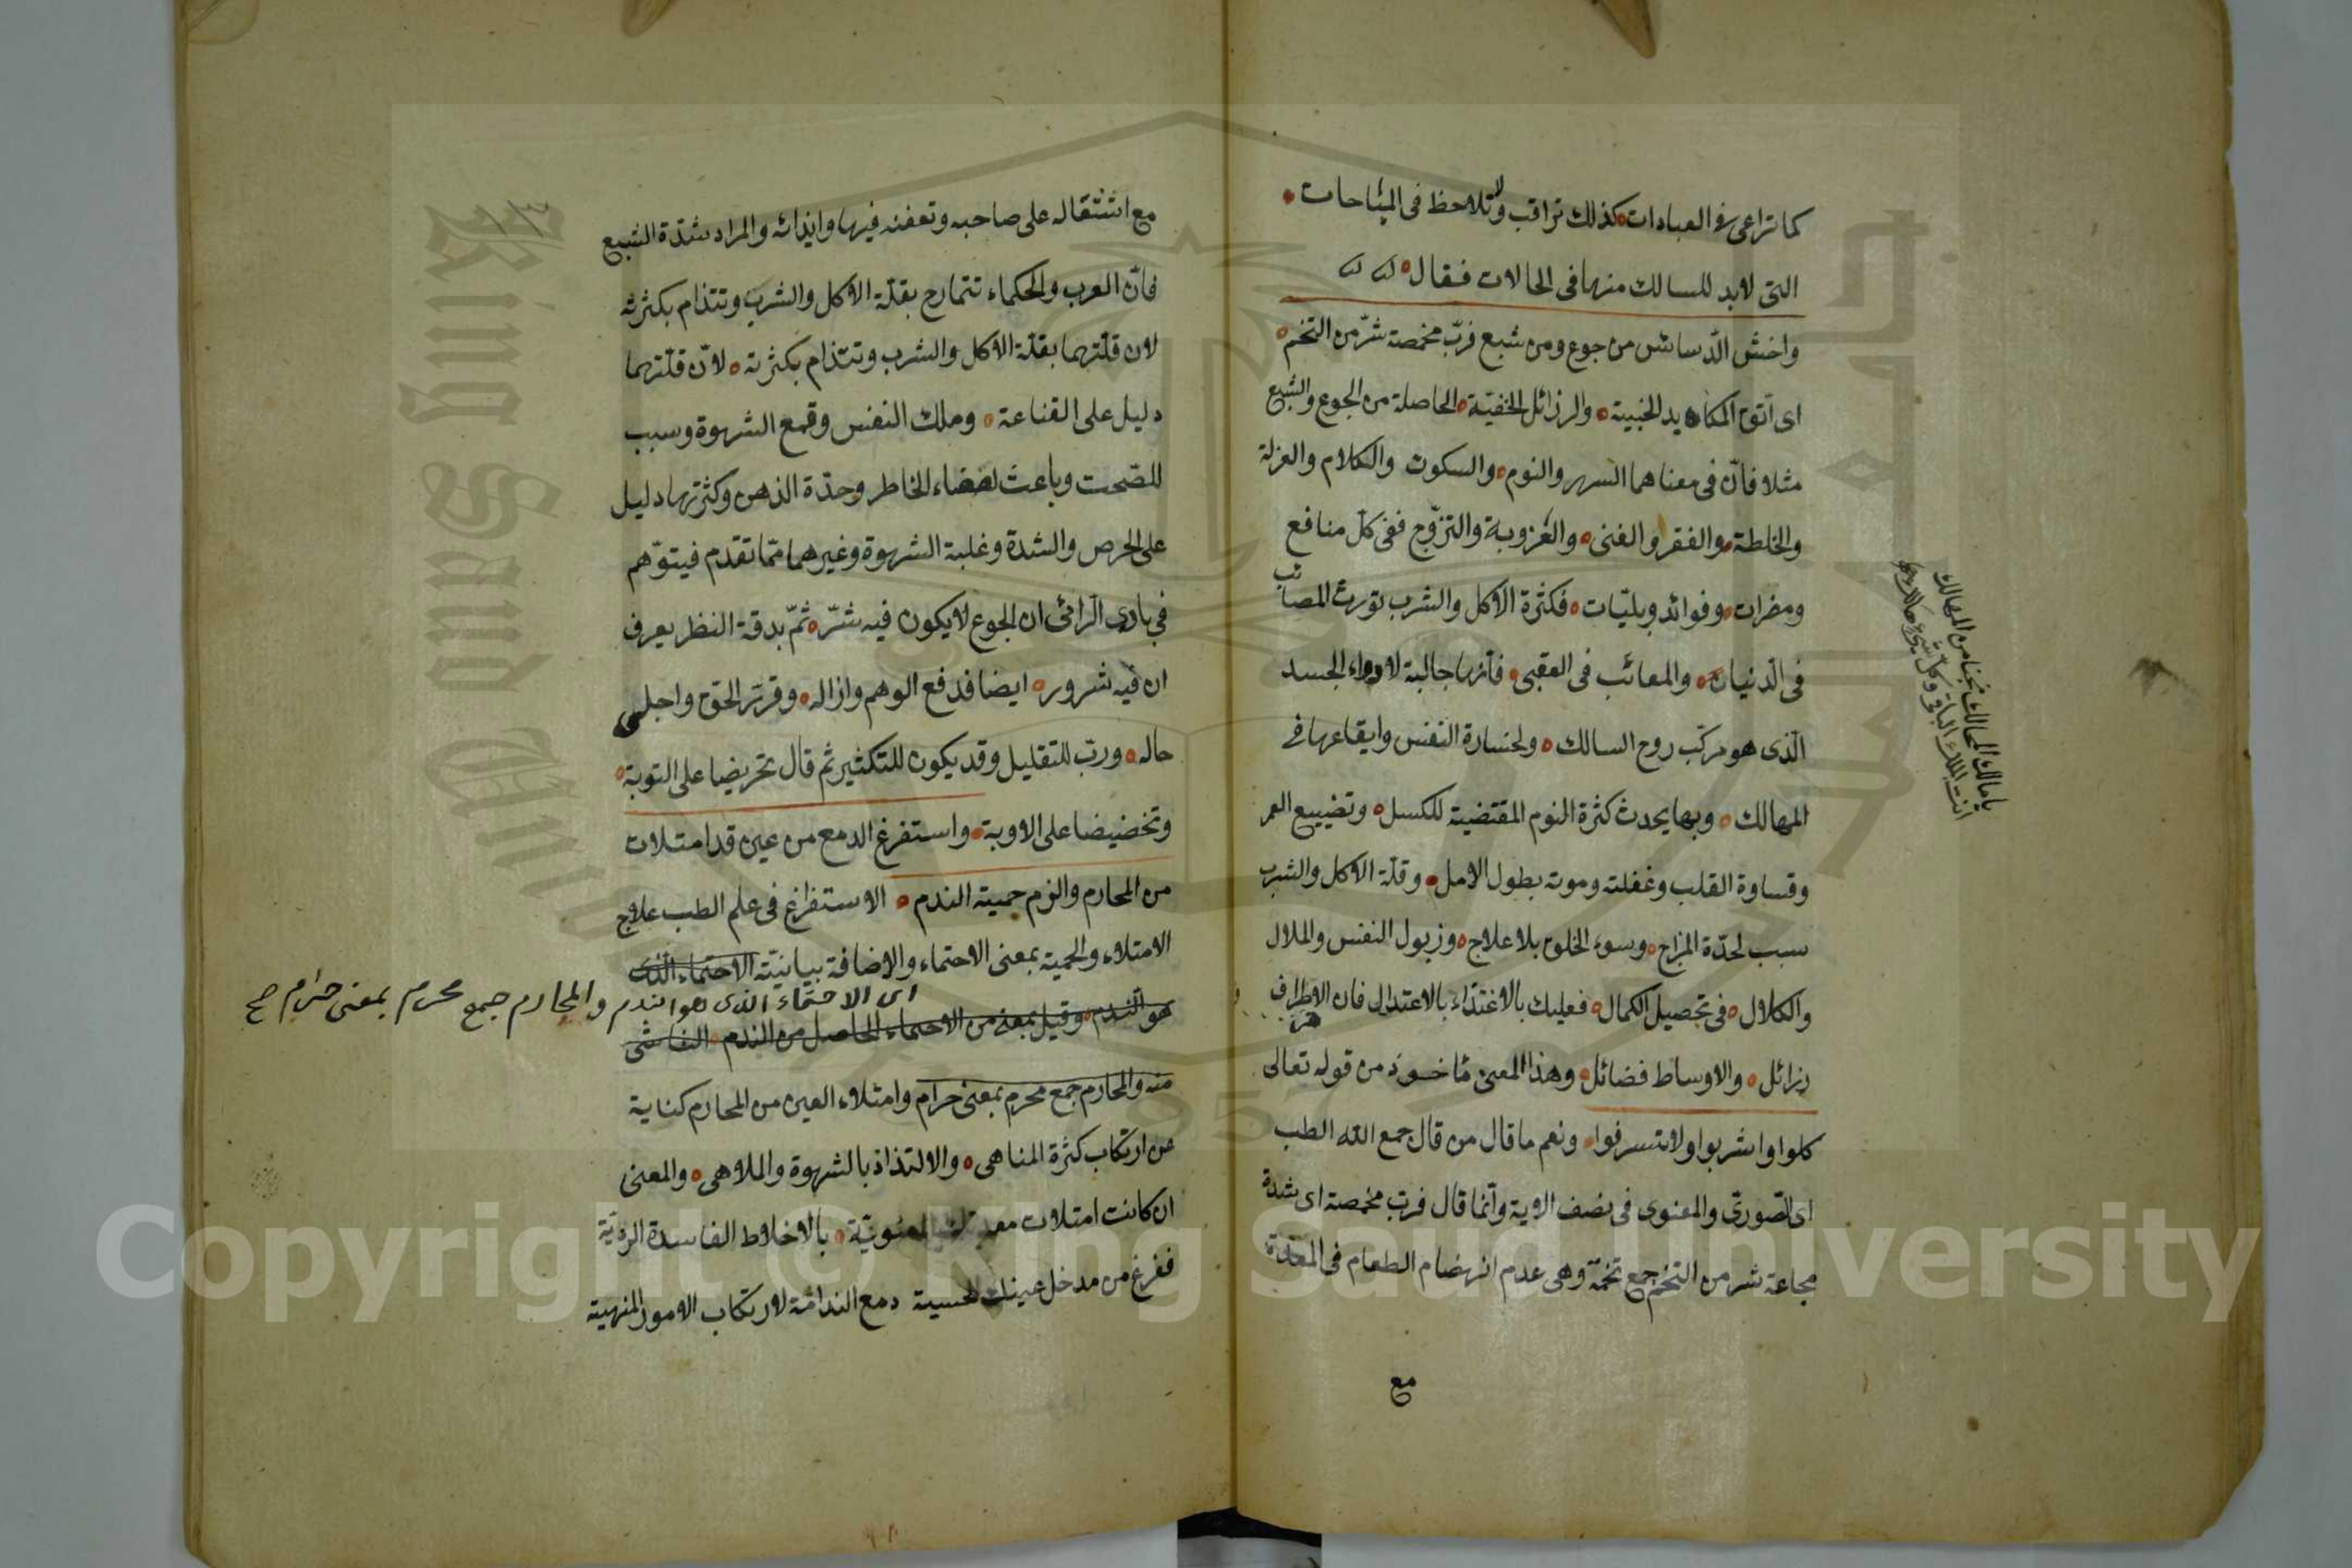 كما تراعى فى العبادات كذلك تراقب ولا تلاحظ فى المباحات
التى لابد للسالك منها فى الحالات فقال
واخش الدّسائس من جوع ومن شبع فربّ مخمصة شرّ من التخم
اى اتق المكايد الخبيثة والرزائل الخفيّة الحاصلة من الجوع والشبع
مثلا فانّ فى معناهما السهر والنوم والسكوت والكلام والعزلة
والخلطة والفقر والغنى والعزوبة والتزوّج ففى كلّ منافع
ومضرات وفوائد وبليّات فكثرة الاكل والشرب تورث المصائب
فى الدنيا والمعائب فى العقبى فانها جالبة لادواء الجسد
الّذى هو مركب روح السالك ولخسارة النفس وايقاعها فى
المهالك وبها يحدث كثرة النوم المقتضية للكسل وتضييع العمر
وقساوة القلب وغفلته وموته بطول الامل وقلّة الاكل والشرب
سبب لحدّة المزاج وسوء الخلق بلا علاج وزبول النفس والملال
والكلال فى تحصيل الكمال فعليك بالاغتذاء بالاعتدال فان الاطراف
رزائل والاوساط فضائل وهذا المعنى مأخوذ من قوله تعالى
كلوا واشربوا ولا تسرفوا ونعم ما قال من قال جمع الله الطب
اى الصّورىّ والمعنوى فى نصف الاية وانّما قال فربّ مخمصة اى شدة
مجاعة شر من التخم جمع تخمة وهى عدم انهضام الطعام فى المعدة
مع
يا مالك الممالك نجنا من المهالك
انت الملك الباقى وكل شىء هالك
١٣
مع استثقاله على صاحبه وتعفنه فيها وايذائه والمراد شدّة الشبع
فانّ العرب والحكماء تتمادح بقلّة الاكل والشرب وتتذام بكثرته
لان قلّتهما بقلّة الاكل والشرب وتتذام بكثرته لانّ قلّتهما
دليل على القناعة وملك النفس وقمع الشهوة وسبب
للصّحت وباعث لصفاء الخاطر وحدّة الذهن وكثرتها دليل
على الحرص والشدة وغلبة الشهوة وغيرهما ممّا تقدم فيتوّهم
فى بادى الرائى ان الجوع لا يكون فيه شرّ ثمّ بدقة النظر يعرف
ان فيه شرور ايضا فدفع الوهم وازاله وقرّر الحق واجلى
حاله وربّ للتقليل وقد يكون للتكثير ثم قال تحريضا على التوبة
وتخضيضا على الاوبة واستفرغ الدمع من عين قد امتلات
من المحارم والزم حمية الندم الاستفراغ فى علم الطب علاج
الامتلاء والحمية بمعنى الاحتماء والاضافة بيانيّة الاحتماء الّذى
اى الاحتماء الذى هو الندم والمحارم جمع محرم بمعنى حرام صح
هو الندم وقيل بمعنى من الاحتماء الحاصل من الندم الناشى
منه والمحارم جمع محرم بمعنى حرام وامتلاء العين من المحارم كناية
عن ارتكاب كثرة المناهى والالتذاذ بالشهوة والملاهى والمعنى
ان كانت امتلات معدتك المعنويّة بالاخلاط الفاسدة الرديّة
ففرغ من مدخل عينك الحسية دمع الندامة لارتكاب الامور المنهية
Copyright © King Saud University
King Saud University
1957